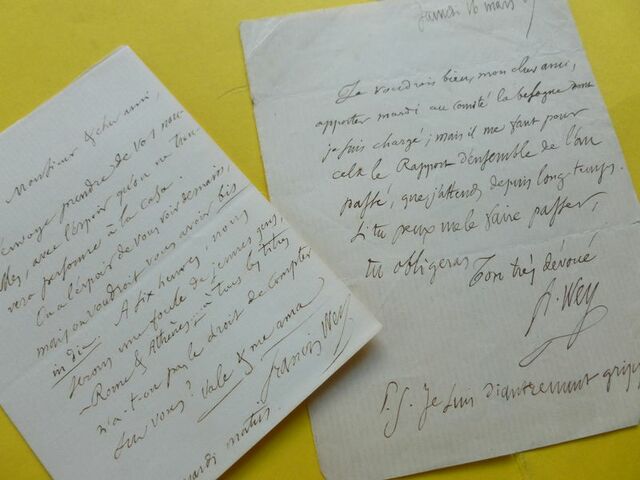 Monsieur & cher ami,
envoye prendre de vos nou
lles, avec l'espoir qu'on ne trou
vera personne à la casa.
On a l'espoir de vous voir demain,
mais on voudrait vous avoir bis
in die. A six heures, nous
serons une foule de jeunes gens,
Rome & Athènes à tous les titres
n'a-t-on pas le droit de compter
sur vous? Vale & me ama
Francis Wey
mardi matin.
16 mars
Je voudrais bien, mon cher ami,
apporter mardi au comité la besogne dont
je suis chargé; mais il me faut pour
cela le Rapport d'ensemble de l'an
passé, que j'attends depuis longtemps.
Si tu peux me le faire passer,
tu obligeras
Ton très dévoué
F. Wey
P.S. Je suis